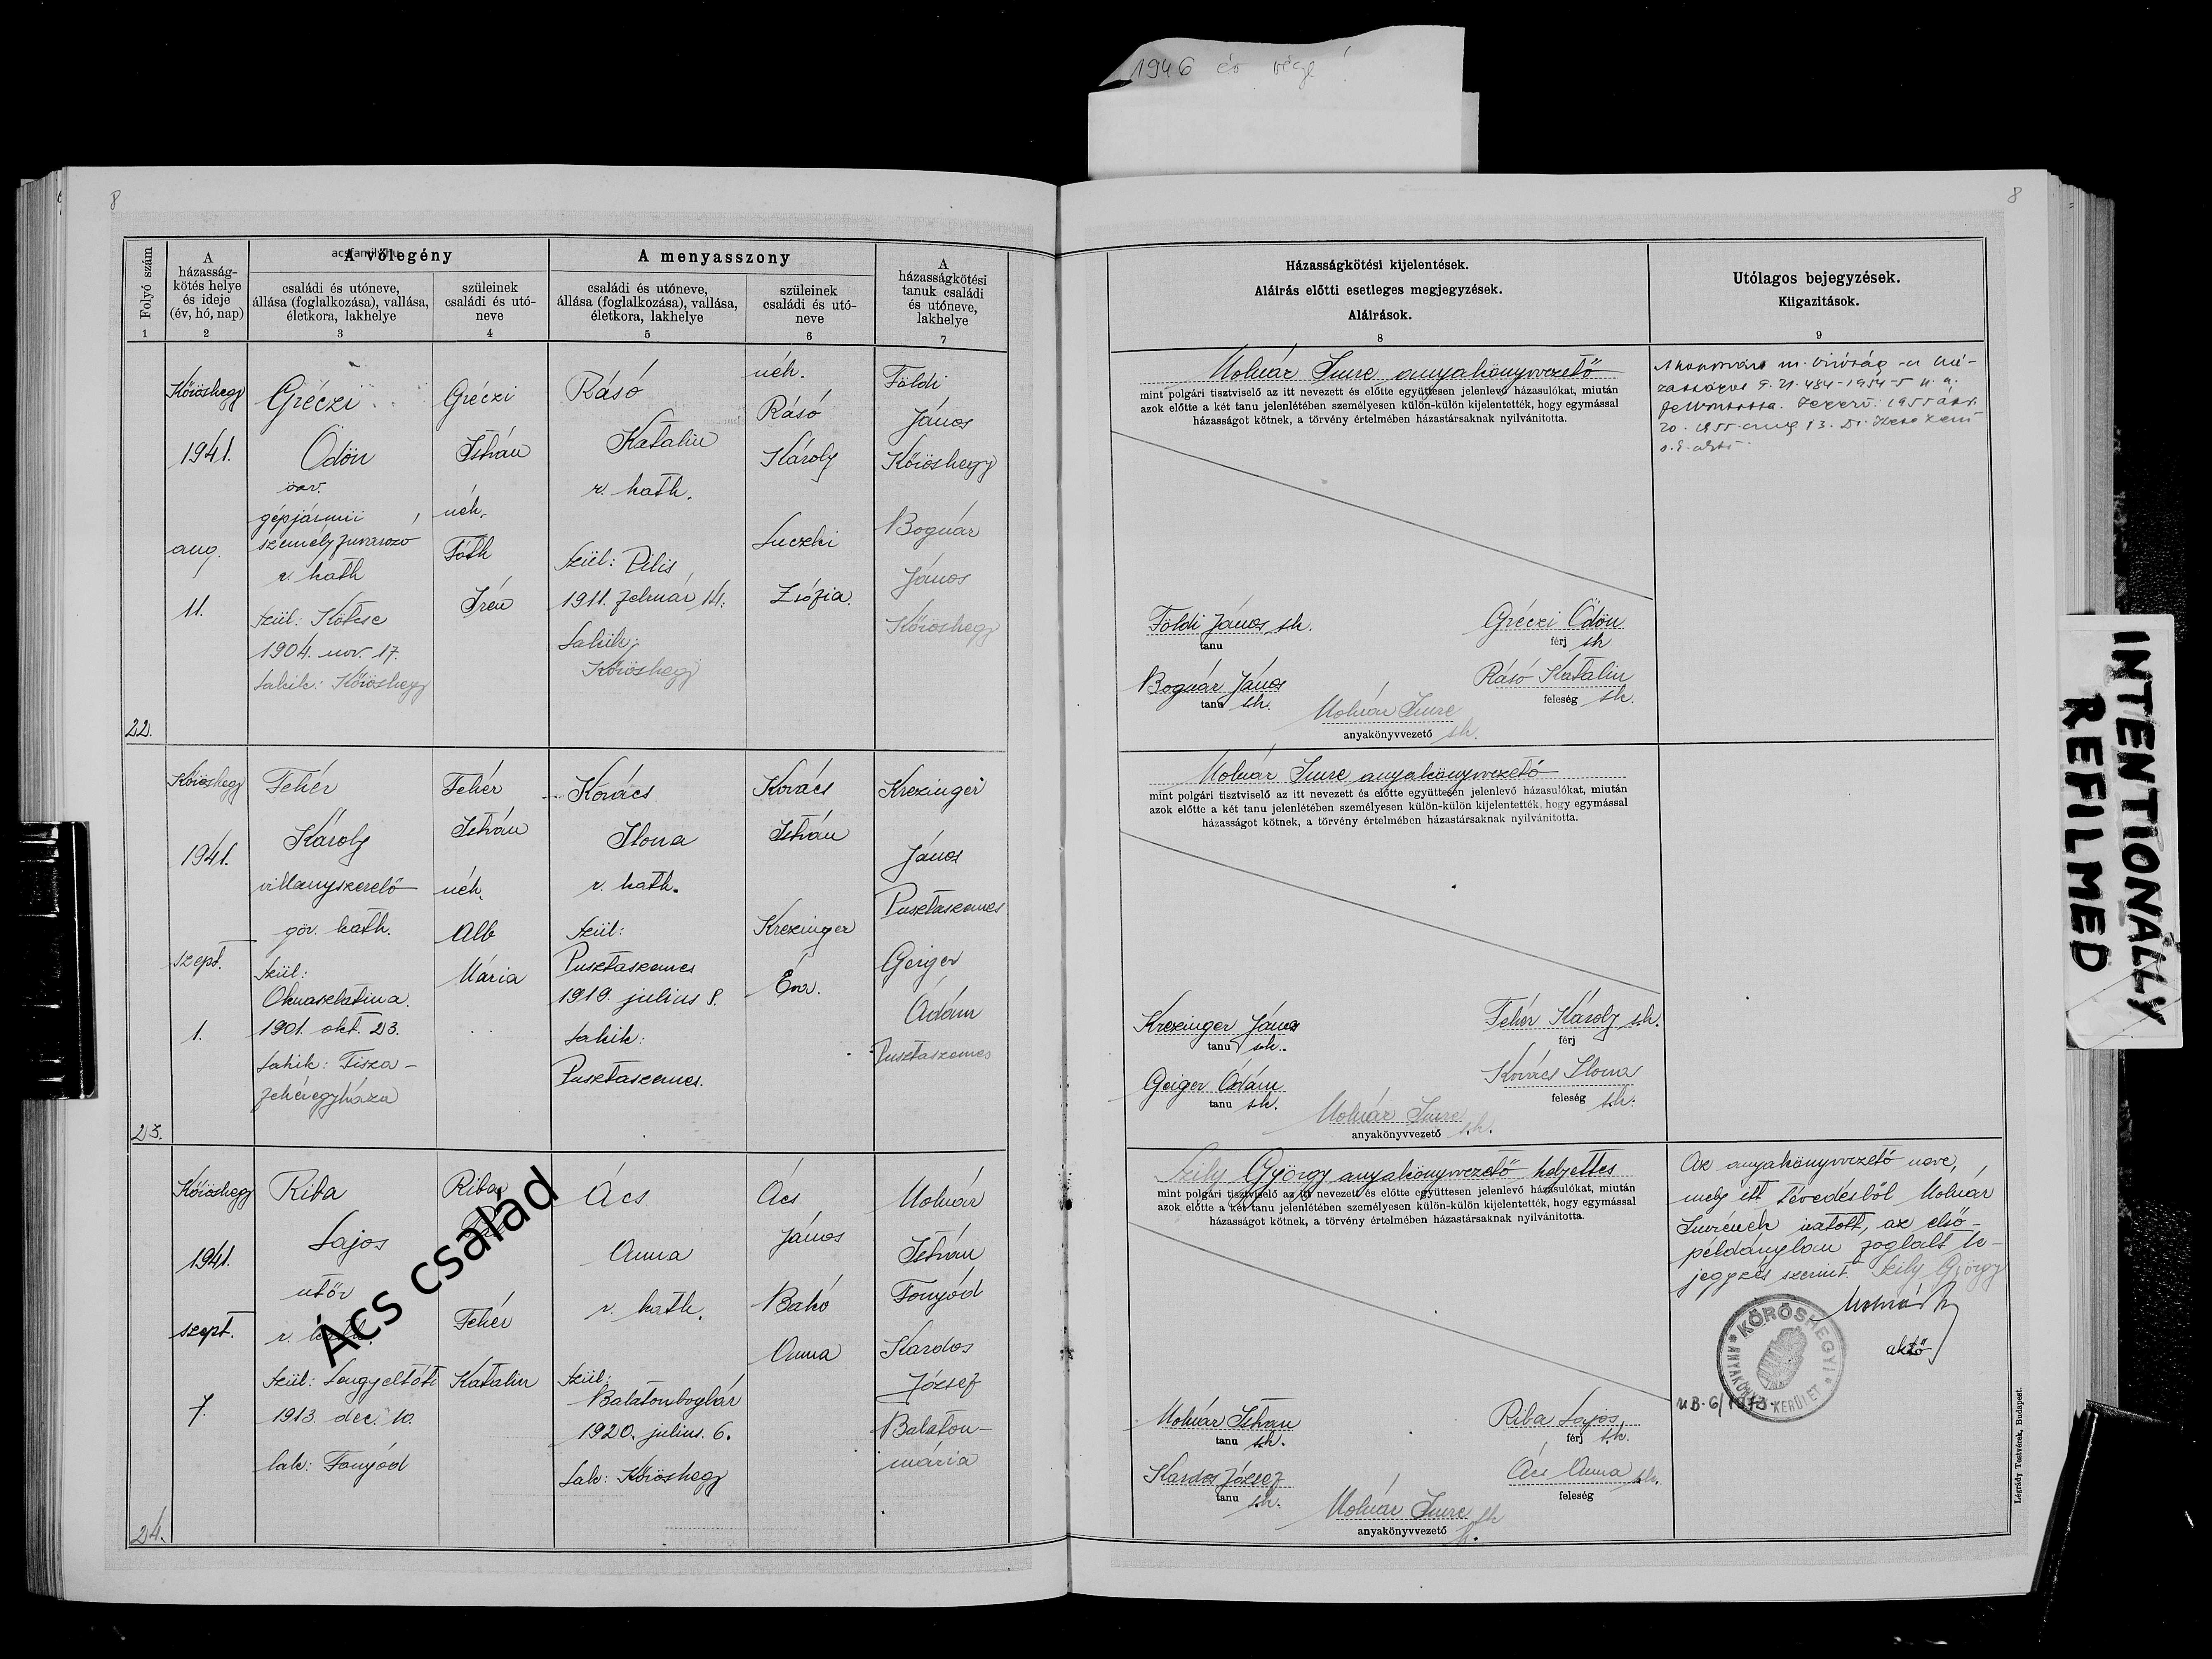 1946 év vége!
8
8
acsfamily.hu
Folyó szám
1
A
házasság-
kötés helye
és ideje
(év, hó, nap)
2
A vőlegény
családi és utóneve,
állása (foglalkozása), vallása,
életkora, lakhelye
3
szüleinek
családi és utó-
neve
4
A menyasszony
családi és utóneve,
állása (foglalkozása), vallása,
életkora, lakhelye
5
szüleinek
családi és utó-
neve
6
A
házasságkötési
tanuk családi
és utóneve,
lakhelye
7
Házasságkötési kijelentések.
Aláírás előtti esetleges megjegyzések.
Aláirások.
8
Utólagos bejegyzések.
Kiigazitások.
9
22.
Kőröshegy
1941.
aug.
11.
Gréczi
Ödön
gépjármü
r. kath
Szül: Kötcse
1904. nov. 17.
Lakik: Kőröshegy
Gréczi
István
néh.
Tóth
Irén
Rásó
Katalin
r. kath.
Szül: Pilis
1911. február 14.
Lakik:
Kőröshegy
néh.
Rásó
Károly
Luczki
Zsófia.
Földi
János
Kőröshegy
Bognár
János
Kőröshegy
Molnár Imre anyakönyvvezető
mint polgári tisztviselő az itt nevezett és előtte együttesen jelenlevő házasulókat, miután
azok előtte a két tanu jelenlétében személyesen külön-külön kijelentették, hogy egymással
házasságot kötnek, a törvény értelmében házastársaknak nyilvánitotta.
Földi János sk.
tanu
Gréczi Ödön
férj sk
Bognár János
tanu sk.
Rásó Katalin
feleség sk.
Molnár Imre
anyakönyvvezető sk.
23.
Kőröshegy
1941.
szept.
1.
Fehér
Károly
villanyszerelő
gör. kath.
Szül:
Aknaszlatina.
1901. okt. 23.
Lakik: Tisza-
fehéregyháza
Fehér
István
néh.
Alb
Mária
Kovács
Ilona
r. kath.
Szül:
Pusztaszemes
1919. julius 8.
Lakik:
Pusztaszemes.
Kovács
István
Krezinger
Éva.
Krezinger
János
Pusztaszemes
Geiger
Ádám
Pusztaszemes
Molnár Imre anyakönyvvezető
mint polgári tisztviselő az itt nevezett és előtte együttesen jelenlevő házasulókat, miután
azok előtte a két tanu jelenlétében személyesen külön-külön kijelentették, hogy egymással
házasságot kötnek, a törvény értelmében házastársaknak nyilvánitotta.
Krezinger János
tanu sk.
Fehér Károly sk.
férj
Geiger Ádám
tanu sk.
Kovács Ilona
feleség sk.
Molnár Imre
anyakönyvvezető sk.
24.
Kőröshegy
1941.
szept.
7.
Riba
Lajos
utőr
r. kath.
Szül: Lengyeltóti
1913. dec. 10.
lak: Fonyód
Riba
Fehér
Katalin
Ács
Anna
r. kath.
Szül:
Balatonboglár
1920. julius. 6.
Lak: Kőröshegy
Ács
János
Bakó
Anna
Molnár
István
Fonyód
Kardos
József
Balaton-
mária
Szily György anyakönyvvezető helyettes
mint polgári tisztviselő az itt nevezett és előtte együttesen jelenlevő házasulókat, miután
azok előtte a két tanu jelenlétében személyesen külön-külön kijelentették, hogy egymással
házasságot kötnek, a törvény értelmében házastársaknak nyilvánitotta.
Molnár István
tanu sk.
Riba Lajos
férj sk.
Kardos József
tanu sk.
Ács Anna sk.
feleség
Molnár Imre sk
anyakönyvvezető
Az anyakönyvvezető neve,
mely itt tévedésből Molnár
Imrének iratott, az első-
példányban foglalt be-
jegyzés szerint Szily György
KŐRÖSHEGYI ANYAKÖNYVI KERÜLET
Ács család
Légrády Testvérek, Budapest.
INTENTIONALLY
REFILMED